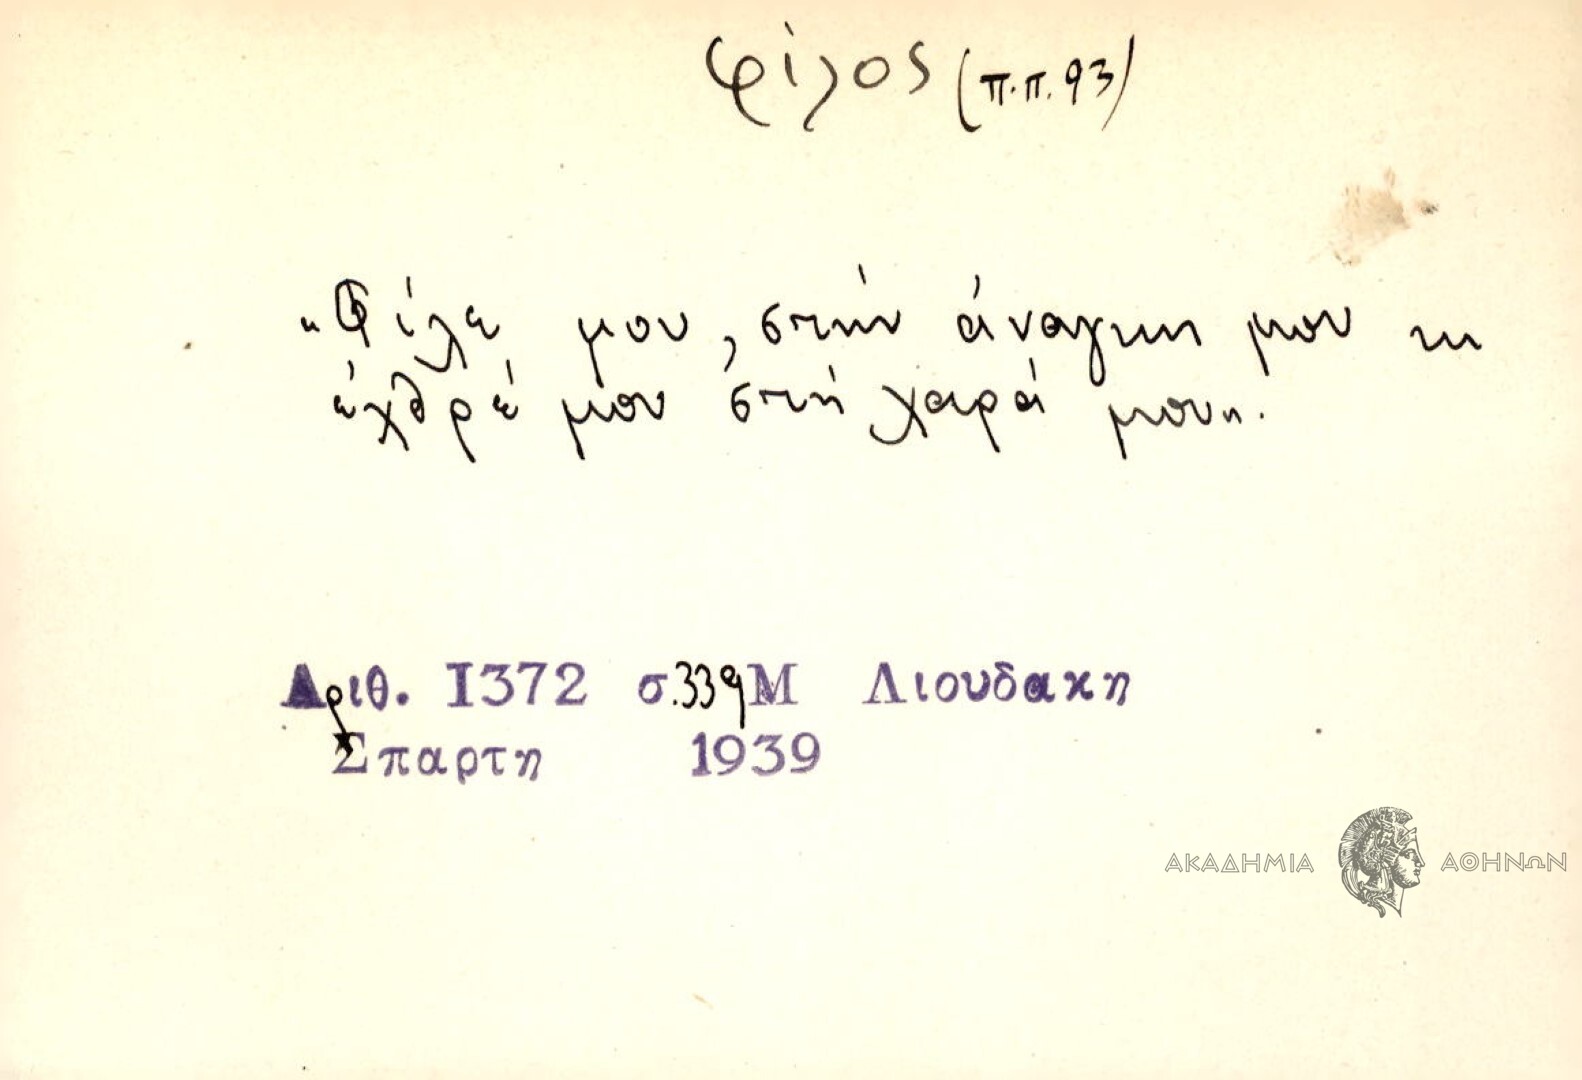 φίλος (π.π. 93)
"Φίλε μου, στήν ἀνάγκη μου κι
ἐχθρέ μου στή χαρά μου".
Αριθ. 1372 σ.339 Μ Λιουδακη
Σπαρτη 1939
ΑΚΑΔΗΜΙΑ ΑΘΗΝΩΝ